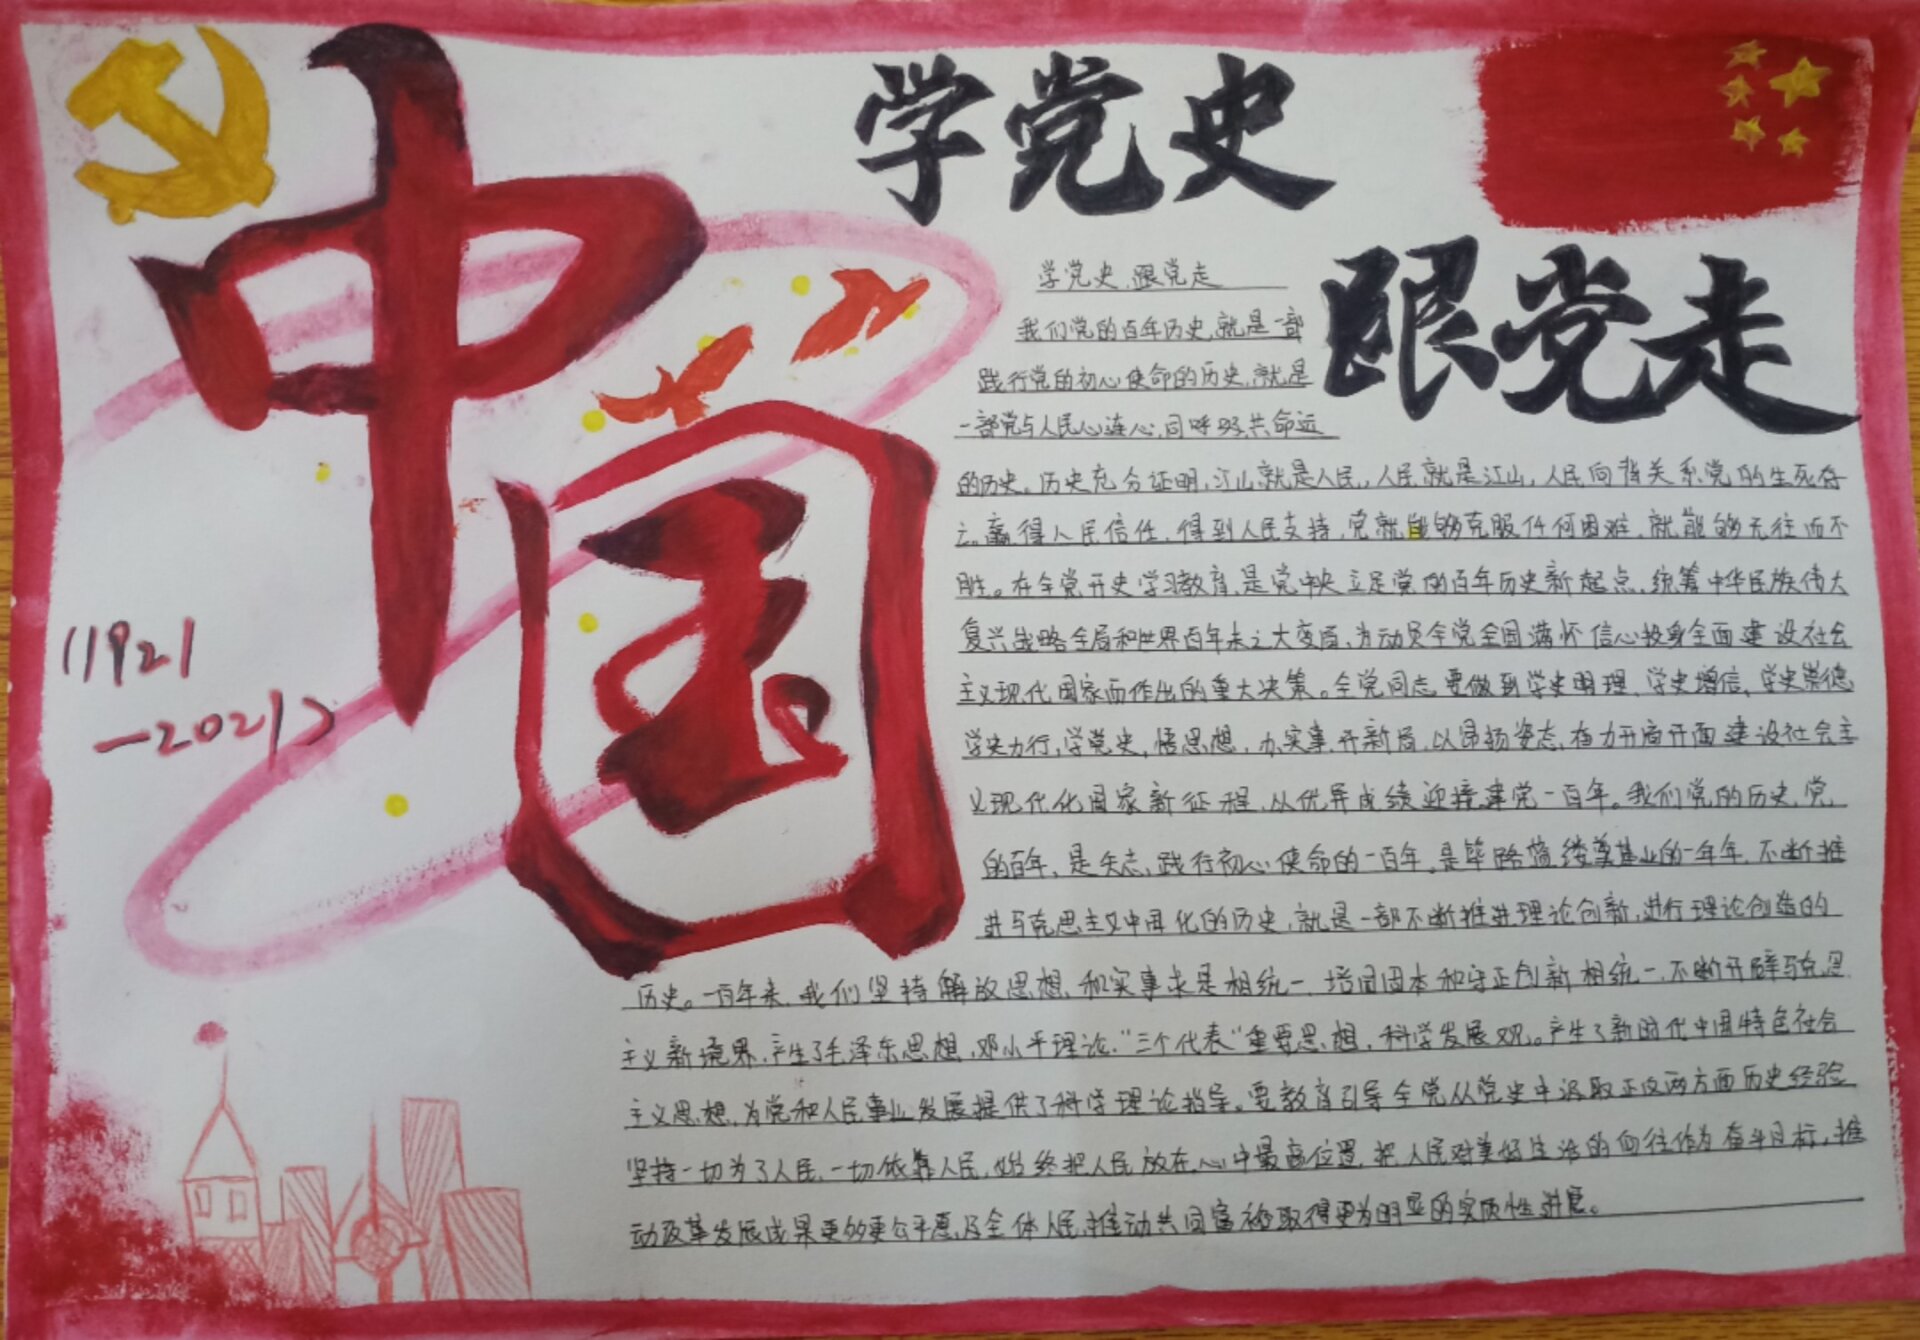 中国
学党史
跟党走
(1921
—2021)
学党史,跟党走
我们党的百年历史,就是一部
践行党的初心使命的历史,就是
一部党与人民心连心,同呼吸,共命运
的历史。历史充分证明,江山就是人民,人民就是江山,人民向背关系党的生死存
亡。赢得人民信任,得到人民支持,党就能够克服任何困难,就能够无往而不
胜。在全党开史学习教育,是党中央立足党的百年历史新起点,统筹中华民族伟大
复兴战略全局和世界百年未之大变局,为动员全党全国满怀信心投身全面建设社会
主义现代国家而作出的重大决策。全党同志要做到学史明理,学史增信,学史崇德
学史力行,学党史,悟思想,办实事,开新局,以昂扬姿态,在力开局开面建设社会主
义现代化国家新征程,从优异成绩迎接建党一百年。我们党的历史,党
的百年,是矢志,践行初心使命的一百年,是筚路蓝缕奠基业的一年年,不断推
进马克思主义中国化的历史,就是一部不断推进理论创新,进行理论创造的
历史。一百年来,我们坚持解放思想和实事求是相统一,培固固本和守正创新相统一,不断开辟马克思
主义新境界,产生了毛泽东思想,邓小平理论,“三个代表”重要思想,科学发展观。产生了新时代中国特色社会
主义思想,为党和人民事业发展提供了科学理论指导。要教育引导全党从党史中汲取正反两方面历史经验
坚持一切为了人民,一切依靠人民,始终把人民放在心中最高位置,把人民对美好生活的向往作为奋斗目标,推
动改革发展成果更多更公平惠及全体人民,推动共同富裕取得更为明显的实质性进展。